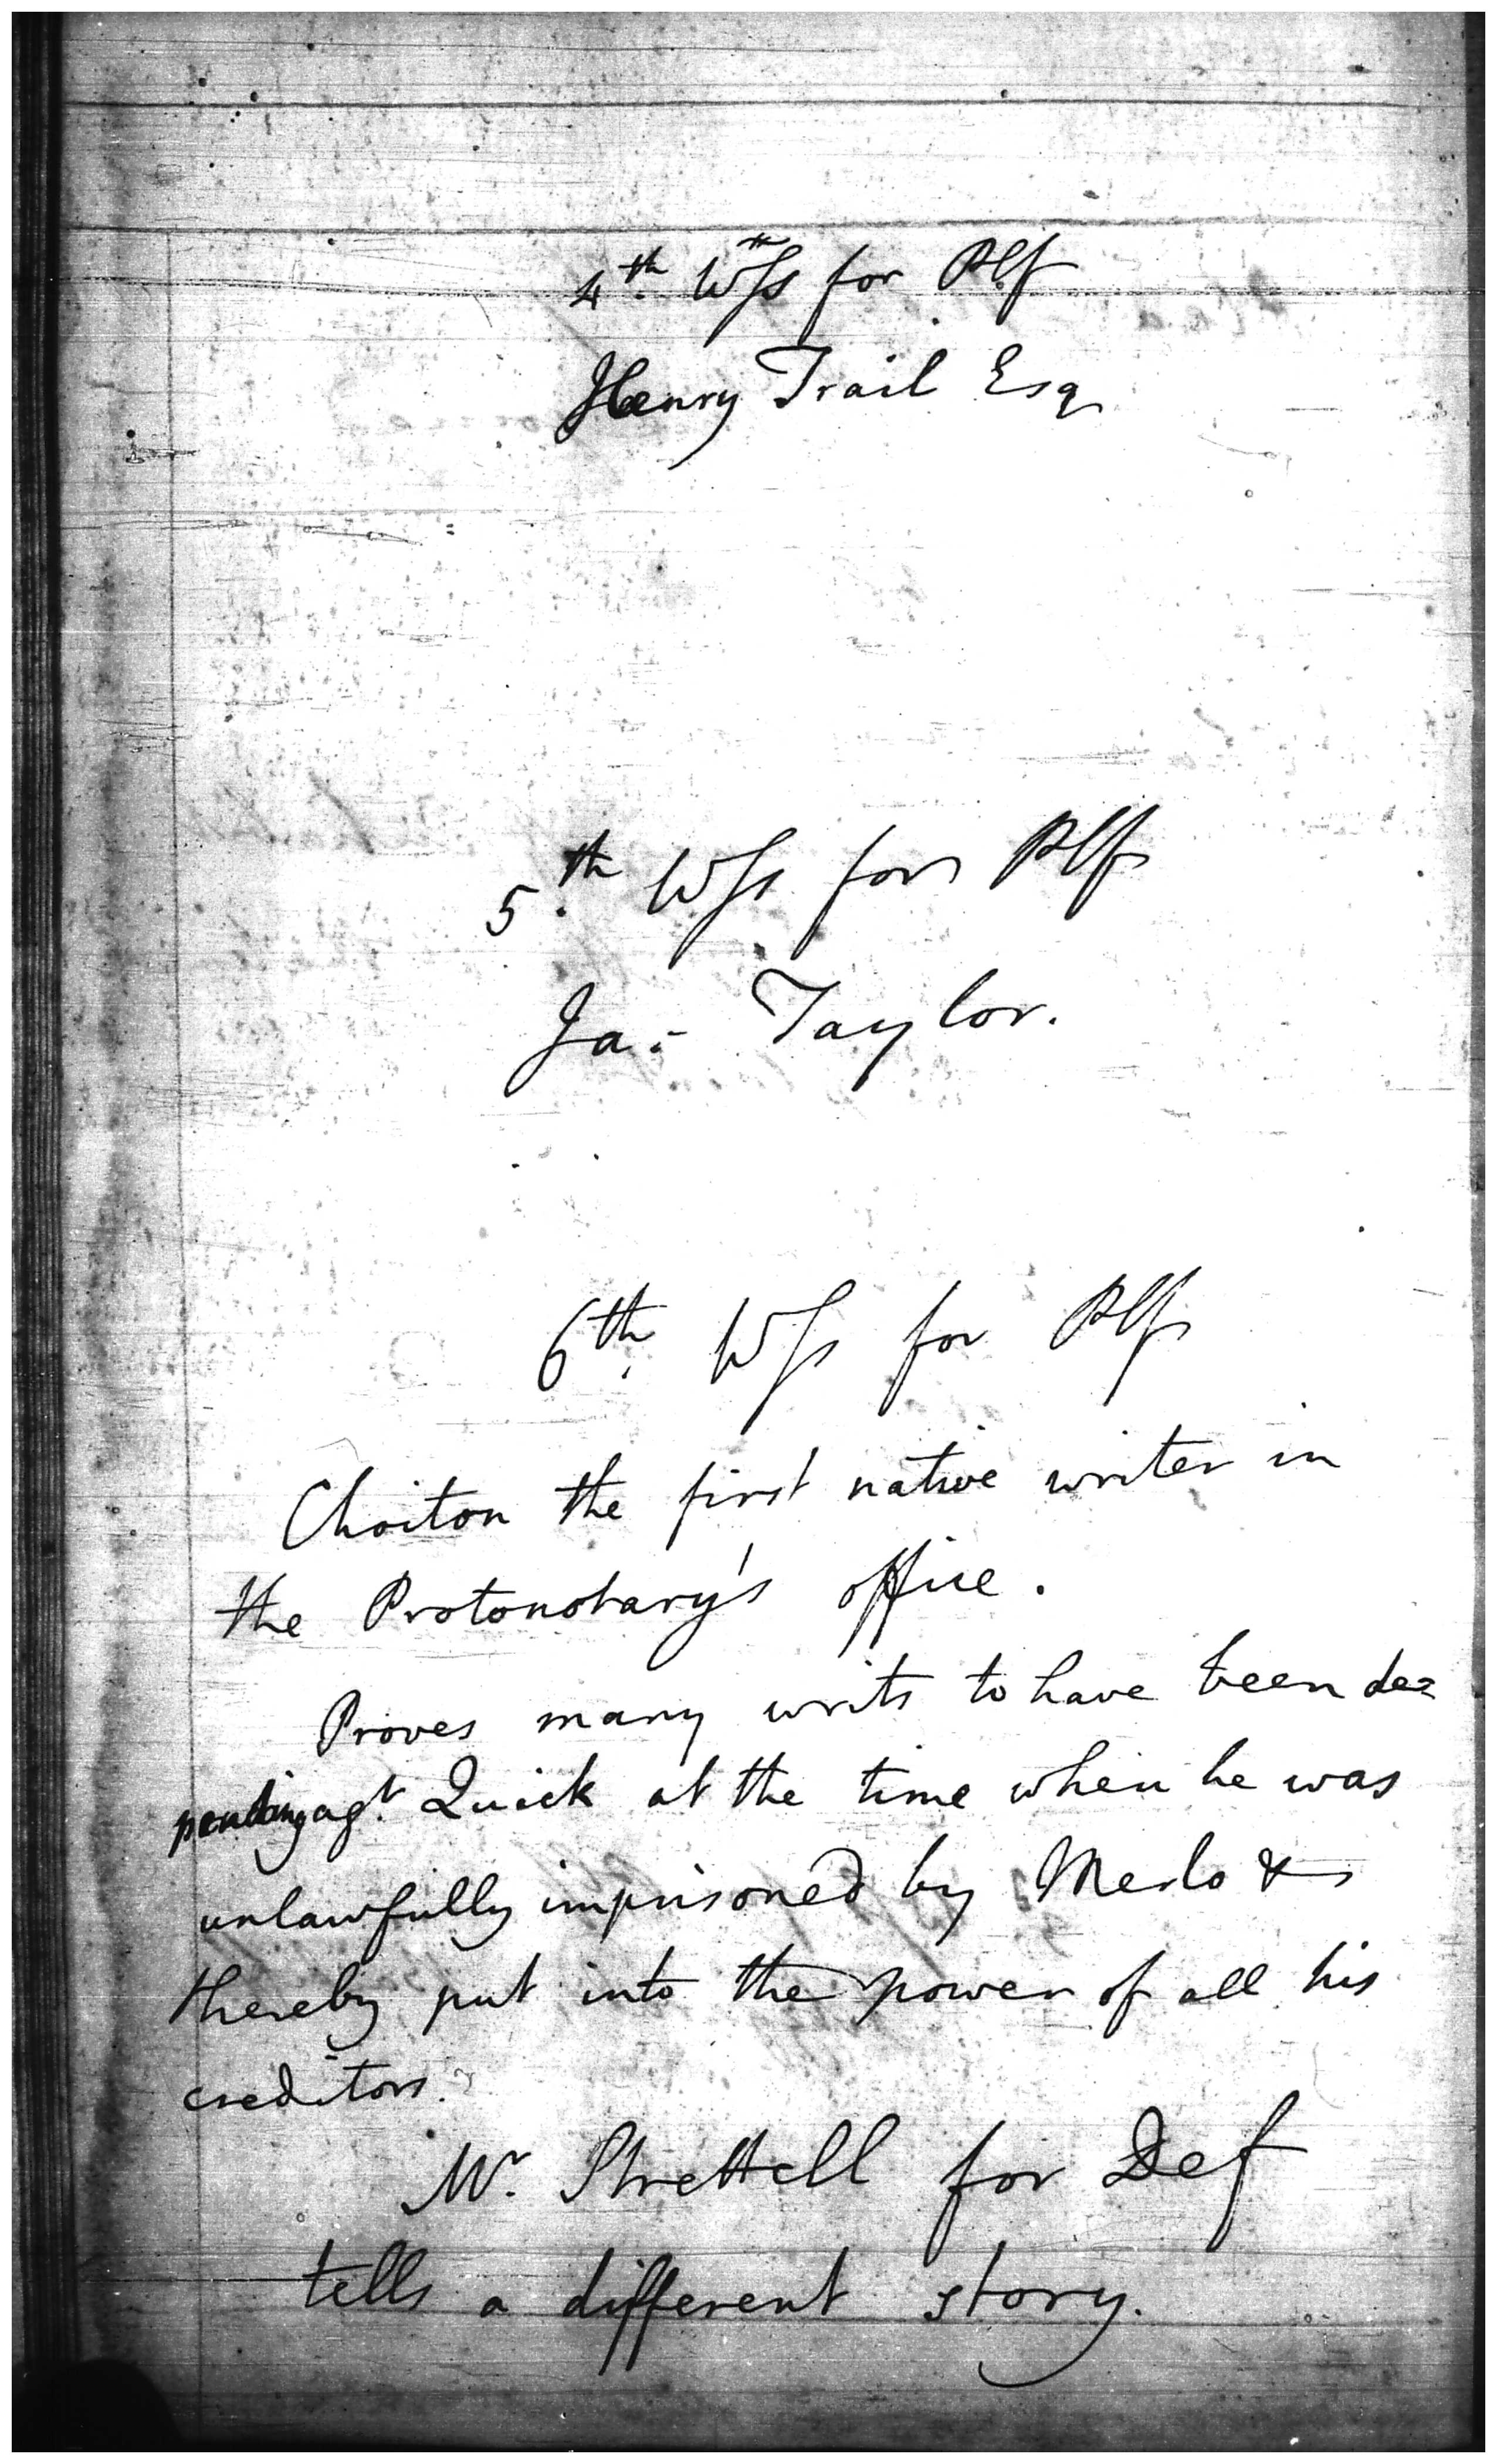 4th Wss for Plf
Henry Trail Esq
5th Wss for Plf
Jas Taylor.
6th Wss for Plf
Choiton the first native writer in
the Protonotary's office.
Proves many writs to have been de=
pending agt Quick at the time when he was
unlawfully imprisoned by Merlo &
thereby put into the power of all his
creditors.
Mr. Strettell for Def
tells a different story.